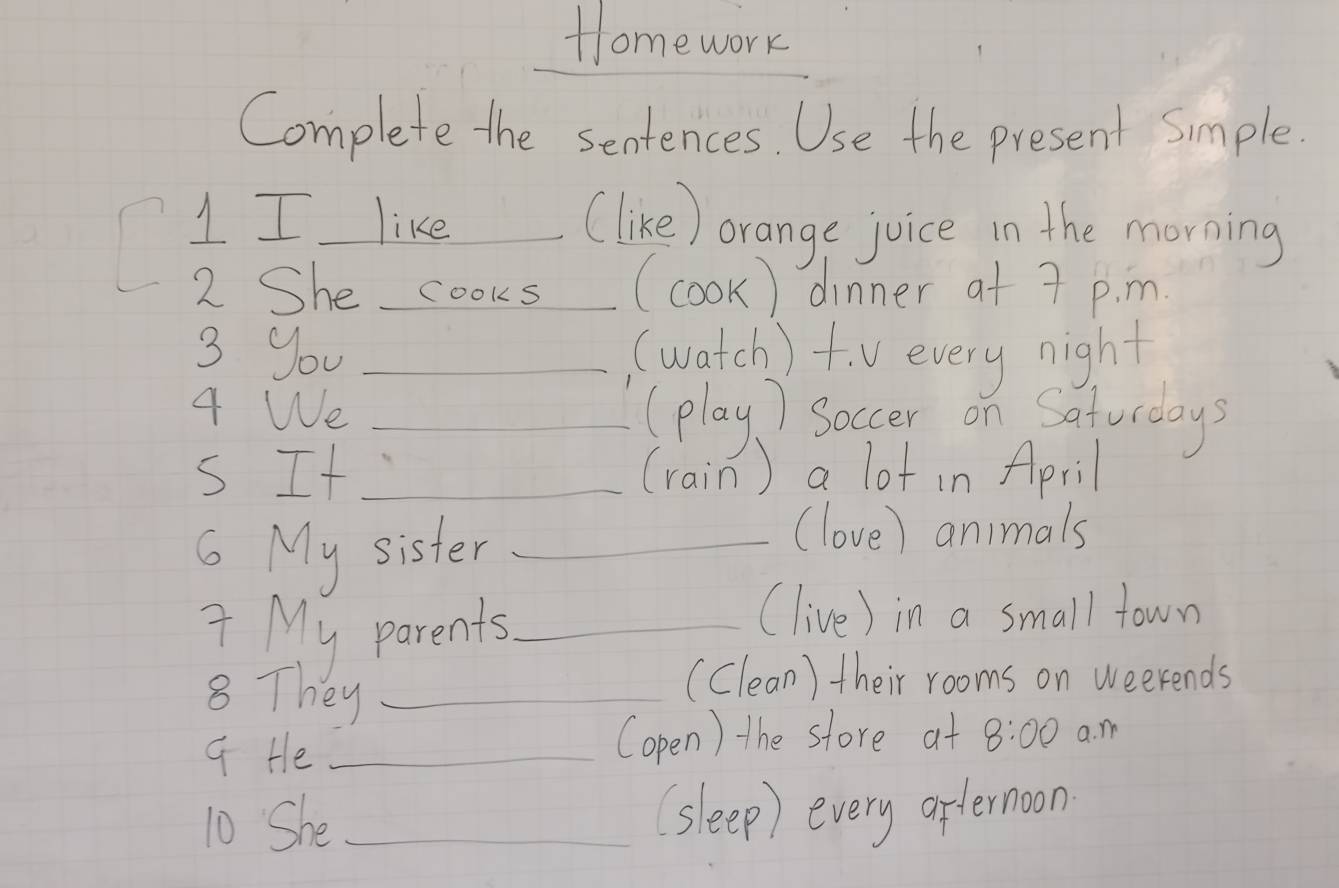 Homework
Complete the sentences. Use the present simple.
1 I like (like) orange juice in the morning
2 She cooks (cook) dinner at 7 p.m.
3 You ________ (watch) t.v every night
4 We ________ (play) soccer on Saturdays
5 It ________ (rain) a lot in April
6 My sister ________ (love) animals
7 My parents ________ (live) in a small town
8 They ________ (Clean) their rooms on weekends
9 He ________ (open) the store at 8:00 a.m
10 She ________ (sleep) every afternoon.